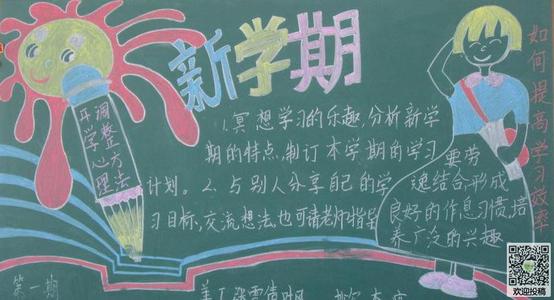 新学期
调整方法
开学心理
1.冥想学习的乐趣,分析新学
期的特点,制订本学期的学习
计划。2.与别人分享自己的学
习目标,交流想法,也可请老师指导
要劳
逸结合,形成
良好的作息习惯,培
养广泛的兴趣
如何提高学习效率
第一期
欢迎投稿